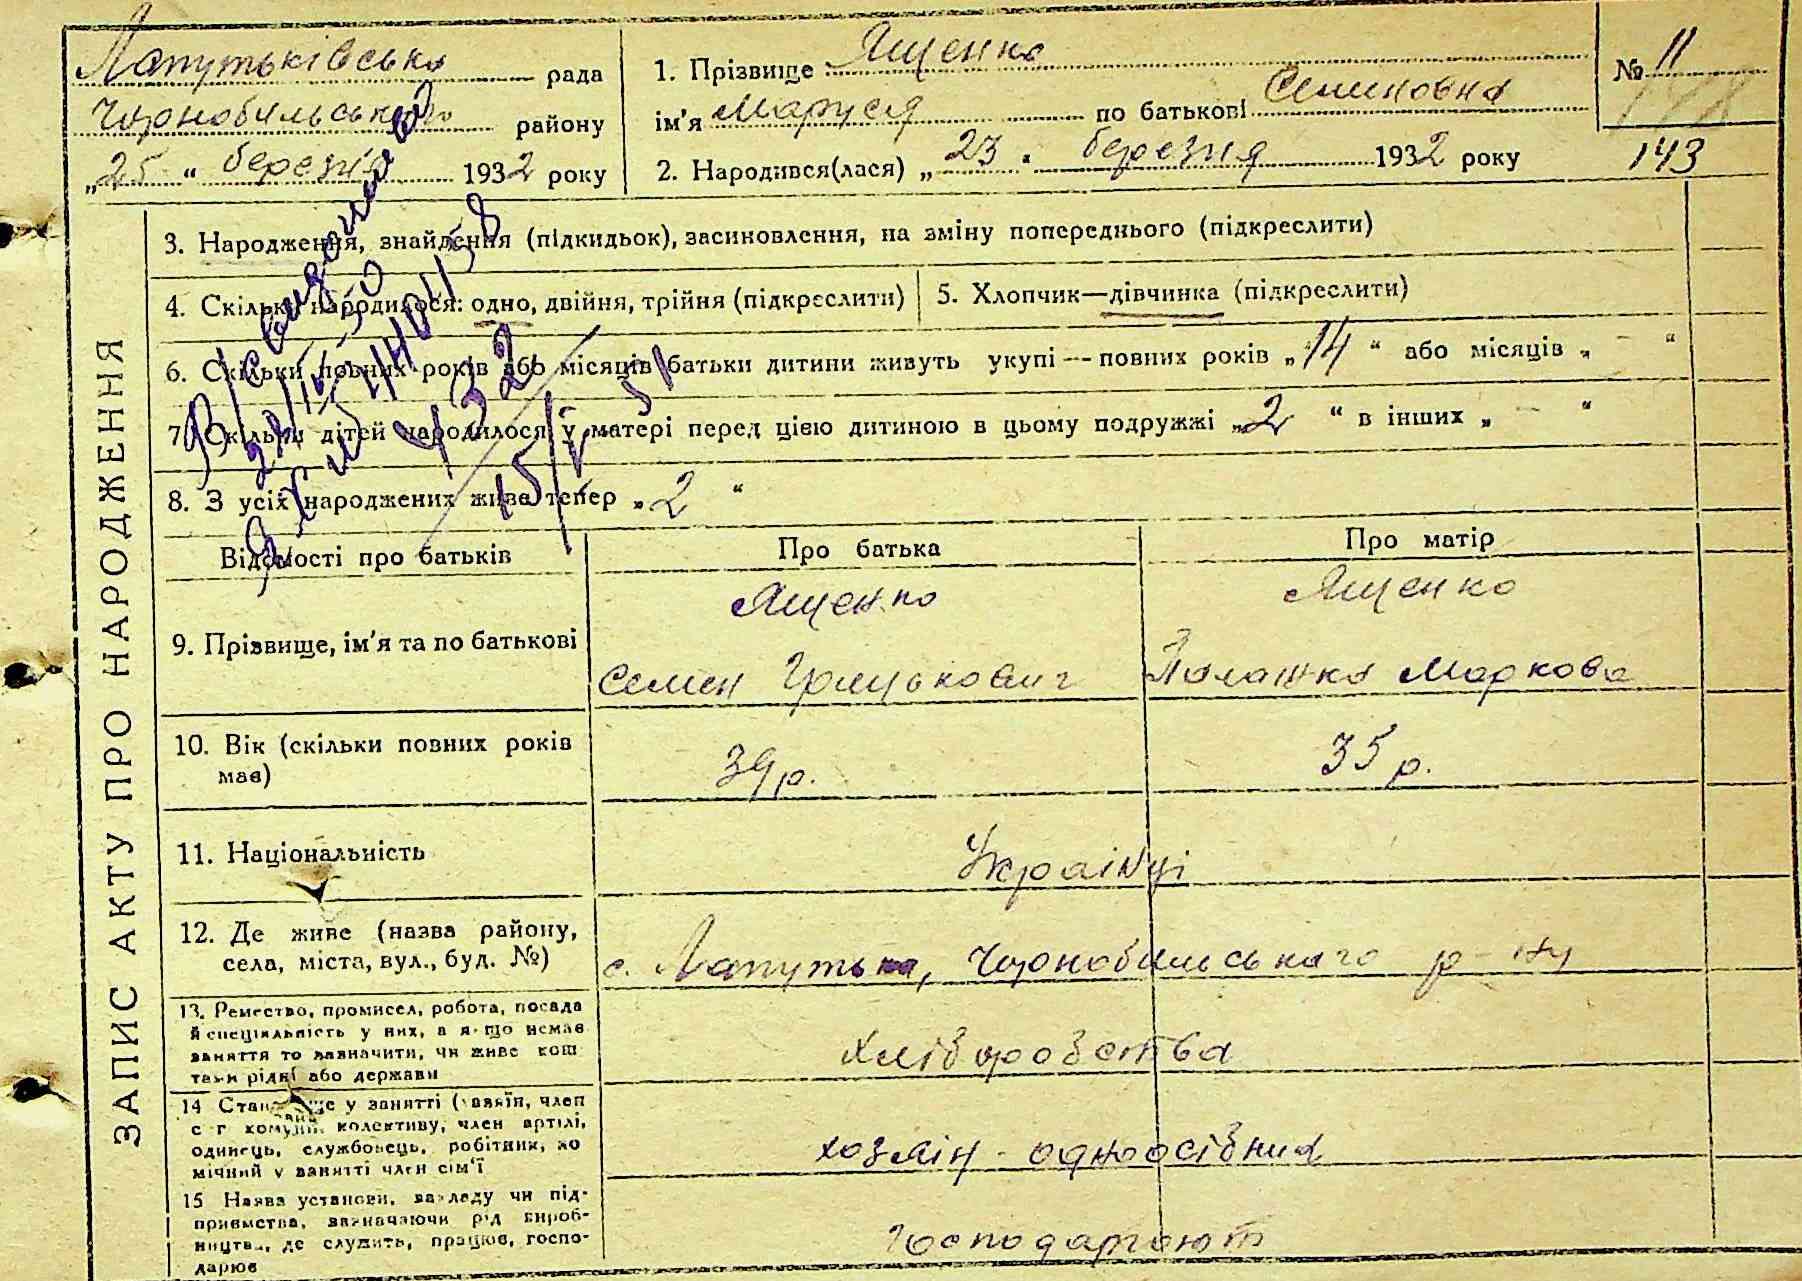 ЗАПИС АКТУ ПРО НАРОДЖЕННЯ
Лапутьківська рада
Чорнобильського району
„25“ березня 1932 року
1. Прізвище Ященко
ім'я Маруся по батькові Семиновна
2. Народився(лася) „23" березня 1932 року
№ 11
143
3. Народження, знайдення (підкидьок), засиновлення, на зміну попереднього (підкреслити)
4. Скільки народилося: одно, двійня, трійня (підкреслити)
5. Хлопчик—дівчинка (підкреслити)
6. Скільки повних років або місяців батьки дитини живуть укупі — повних років „14“ або місяців „ - “
7. Скільки дітей народилося у матері перед цією дитиною в цьому подружжі „2“ в інших „ - “
8. З усіх народжених живе тепер „2“
Відомості про батьків
Про батька
Про матір
9. Прізвище, ім'я та по батькові
Ященко
Семен Грицькович
Ященко
Палашка Маркова
10. Вік (скільки повних років
має)
39 р.
35 р.
11. Національність
Українці
12. Де живе (назва району,
села, міста, вул., буд. №)
с. Лапутька, Чорнобильського р-ну
13. Ремество, промисел, робота, посада
й спеціяльність у них, а якщо немає
заняття то зазначити, чи живе кош
тами рідні або держави
хліборобства
14 Становище у занятті (хазяїн, член
с г комуни, колективу, член артілі,
одинець, службовець, робітник, по
мічний у занятті член сім'ї
хозяін - одноосібник
15 Назва установи, закладу чи під-
приємства, зазначаючи рід вироб-
ництва, де служить, працює, госпо-
дарює
Господарюют